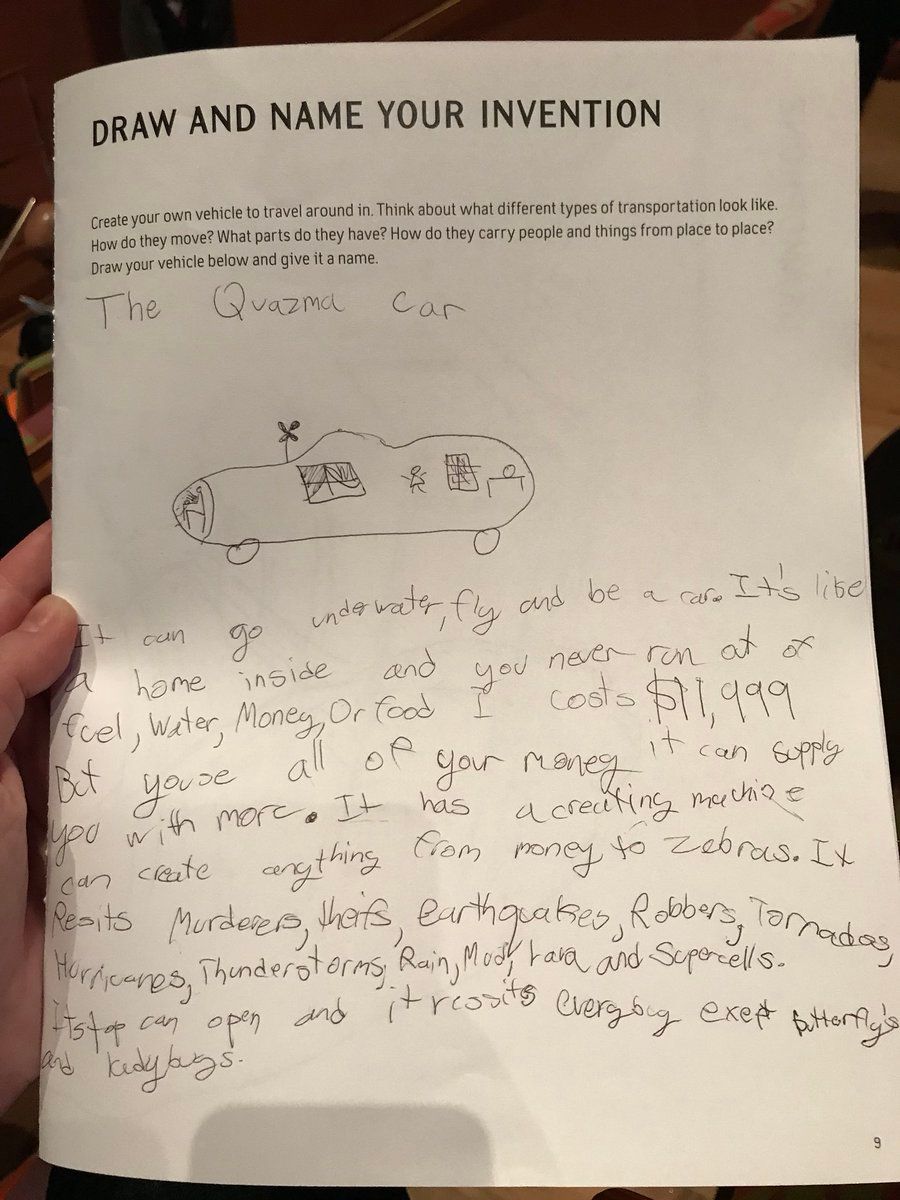 DRAW AND NAME YOUR INVENTION
Create your own vehicle to travel around in. Think about what different types of transportation look like.
How do they move? What parts do they have? How do they carry people and things from place to place?
Draw your vehicle below and give it a name.
The Quazma Car
It can go underwater, fly and be a car. It's like
a home inside and you never run at of
fuel, Water, Money, Or food I costs $11,999
But youse all of your money it can supply
you with more. It has a creating machine
can create anything from money to zebras. It
Resits Murderers, theifs, earthquakes, Robbers, Tornados,
Hurricanes, Thunderstorms, Rain, Mud, Lava and Supercells.
Itstop can open and it ressits everybug exept butterfly's
and ladybugs.
9